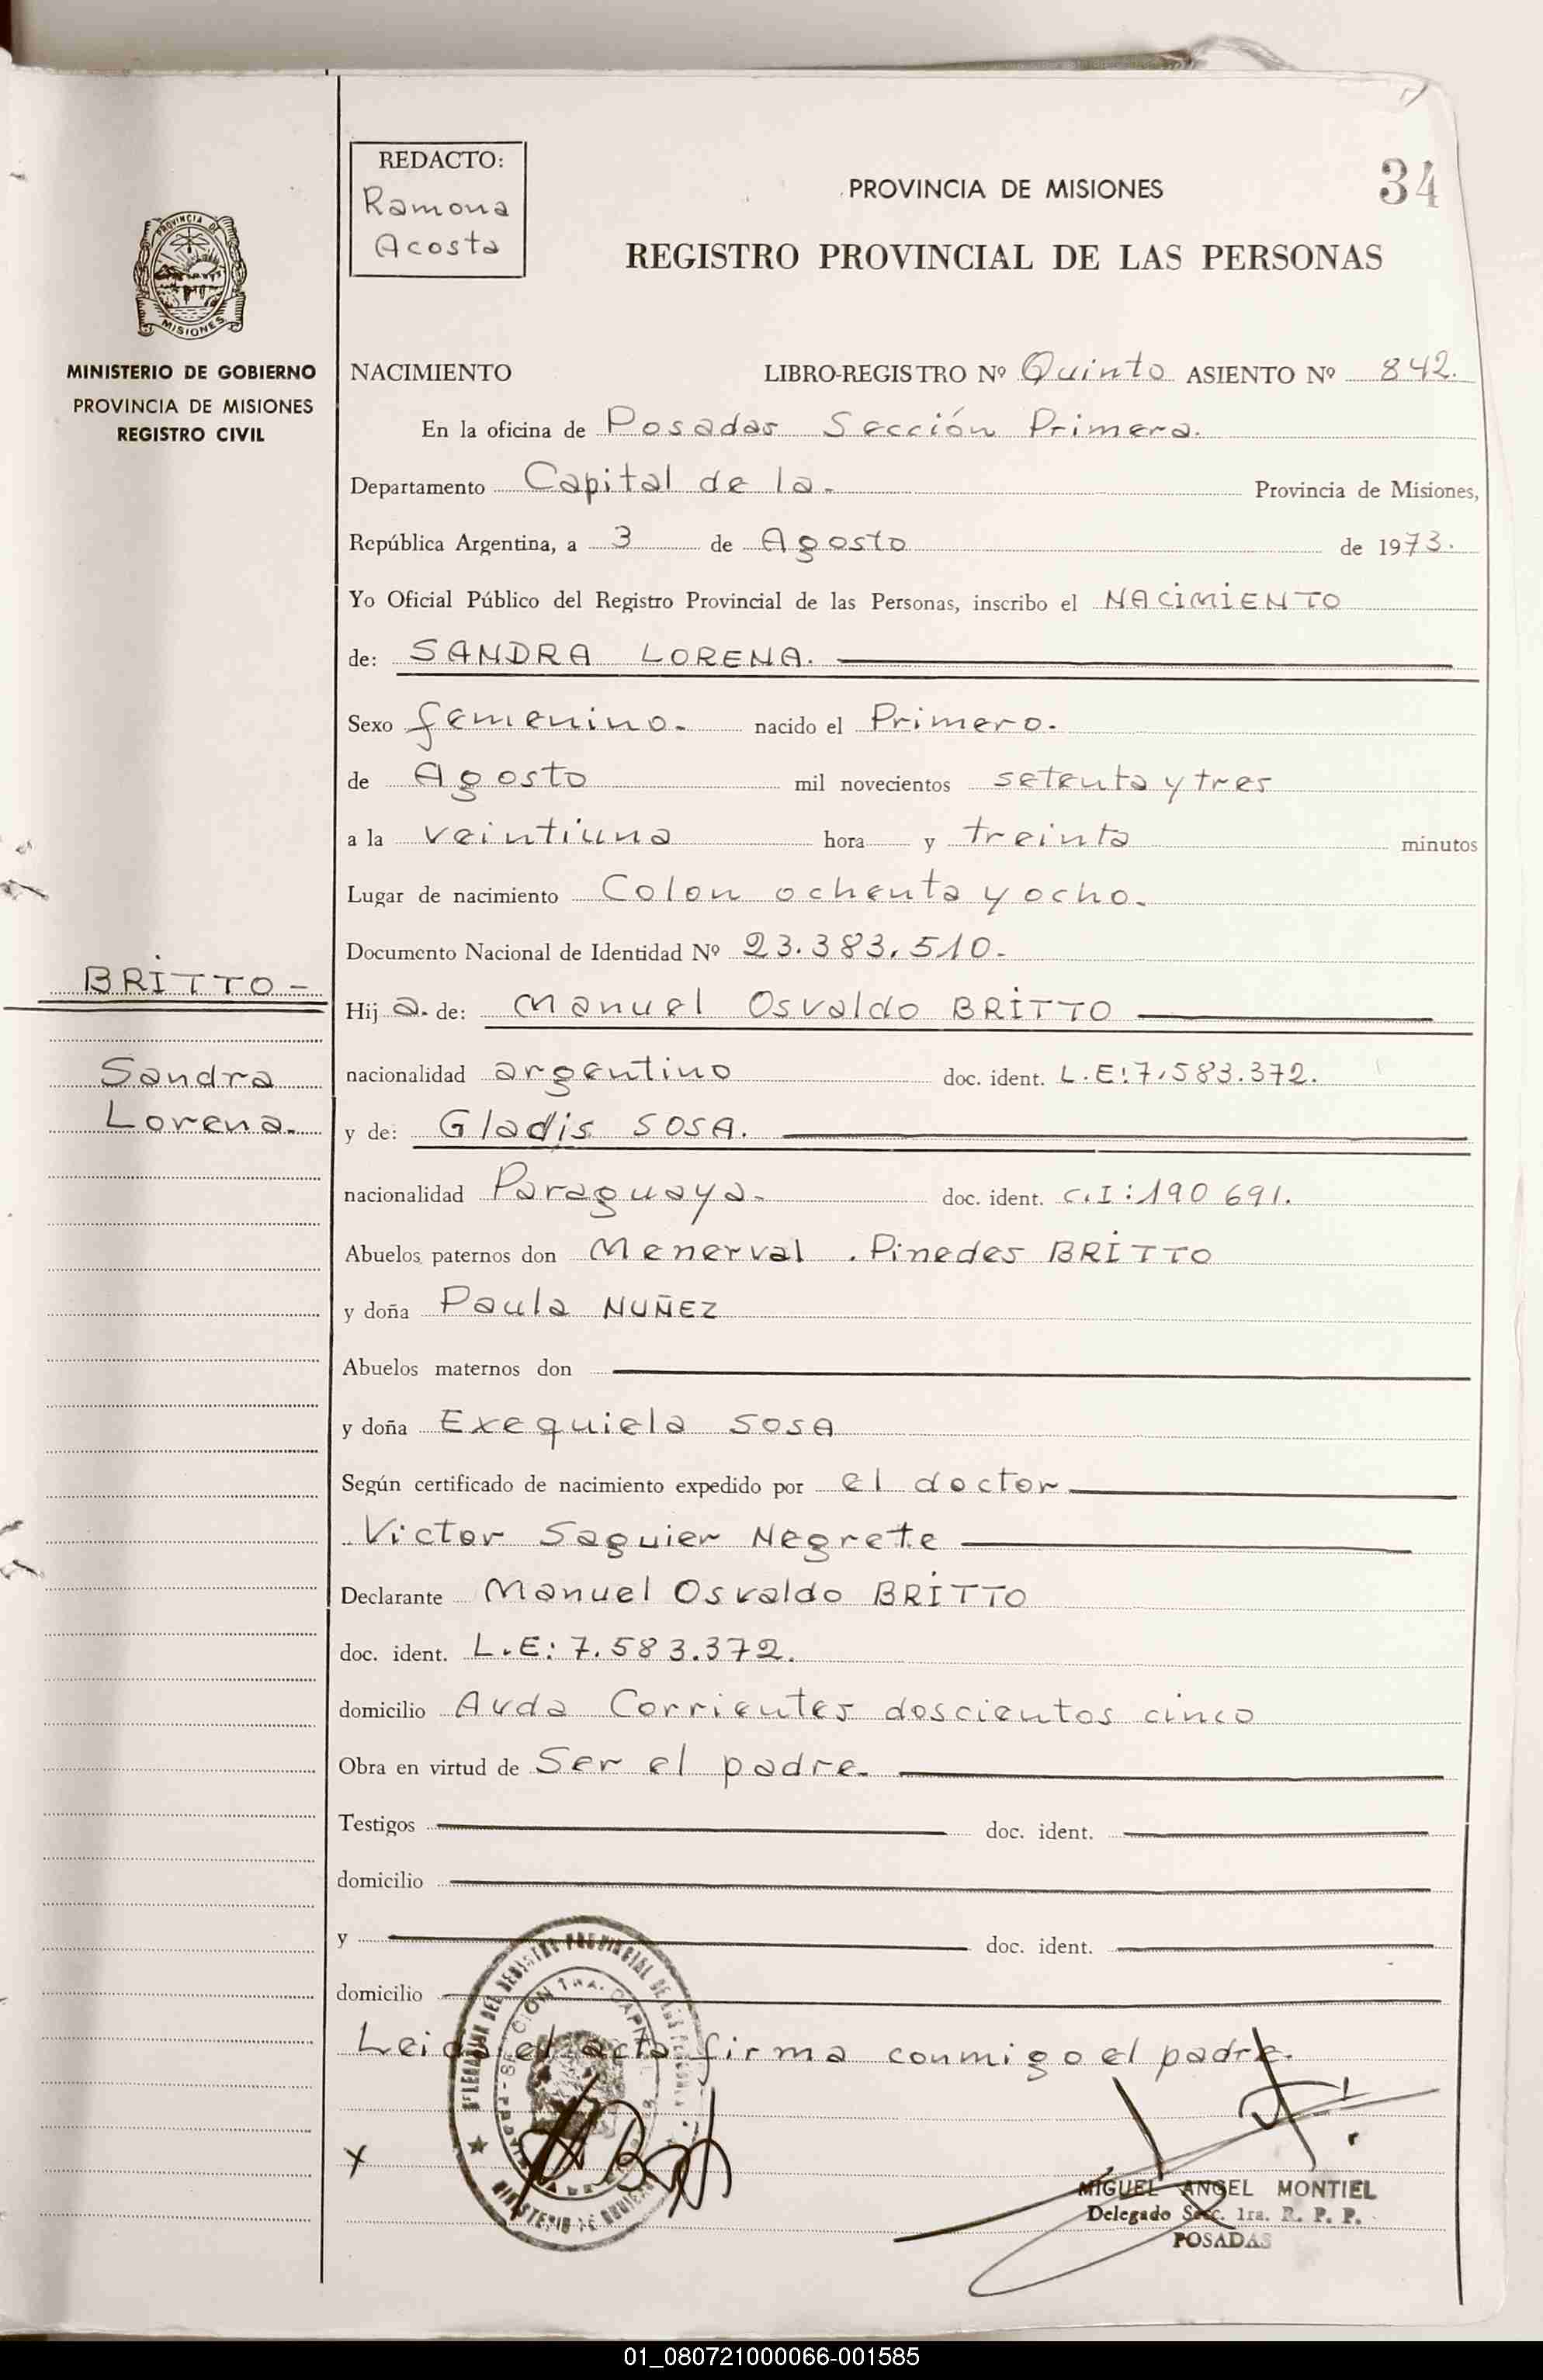 REDACTO:
Ramona
Acosta
PROVINCIA DE MISIONES
34
REGISTRO PROVINCIAL DE LAS PERSONAS
PROVINCIA DE
MISIONES
MINISTERIO DE GOBIERNO
PROVINCIA DE MISIONES
REGISTRO CIVIL
NACIMIENTO LIBRO-REGISTRO Nº Quinto ASIENTO Nº 842.
En la oficina de Posadas Sección Primera.
Departamento Capital de la. Provincia de Misiones,
República Argentina, a 3 de Agosto de 1973.
Yo Oficial Público del Registro Provincial de las Personas, inscribo el NACIMIENTO
de: SANDRA LORENA.
Sexo femenino. nacido el Primero.
de Agosto mil novecientos setenta y tres
a la veintiuna hora y treinta minutos
Lugar de nacimiento Colon ochenta y ocho.
Documento Nacional de Identidad Nº 23.383.510.
BRITTO -
Hij a. de: Manuel Osvaldo BRITTO
Sandra
nacionalidad argentino doc. ident. L.E:7.583.372.
Lorena.
y de: Gladis SOSA.
nacionalidad Paraguaya. doc. ident. C.I:190 691.
Abuelos paternos don Menerval . Pinedes BRITTO
y doña Paula NUÑEZ
Abuelos maternos don
y doña Exequiela SOSA
Según certificado de nacimiento expedido por el doctor
Victor Saguier Negrete
Declarante Manuel Osvaldo BRITTO
doc. ident. L.E: 7.583.372.
domicilio Avda Corrientes doscientos cinco
Obra en virtud de Ser el padre.
Testigos doc. ident.
domicilio
y doc. ident.
domicilio
Leida el acta firma conmigo el padre.
x
MIGUEL ANGEL MONTIEL
Delegado Secc. 1ra. R. P. P.
POSADAS
01_080721000066-001585